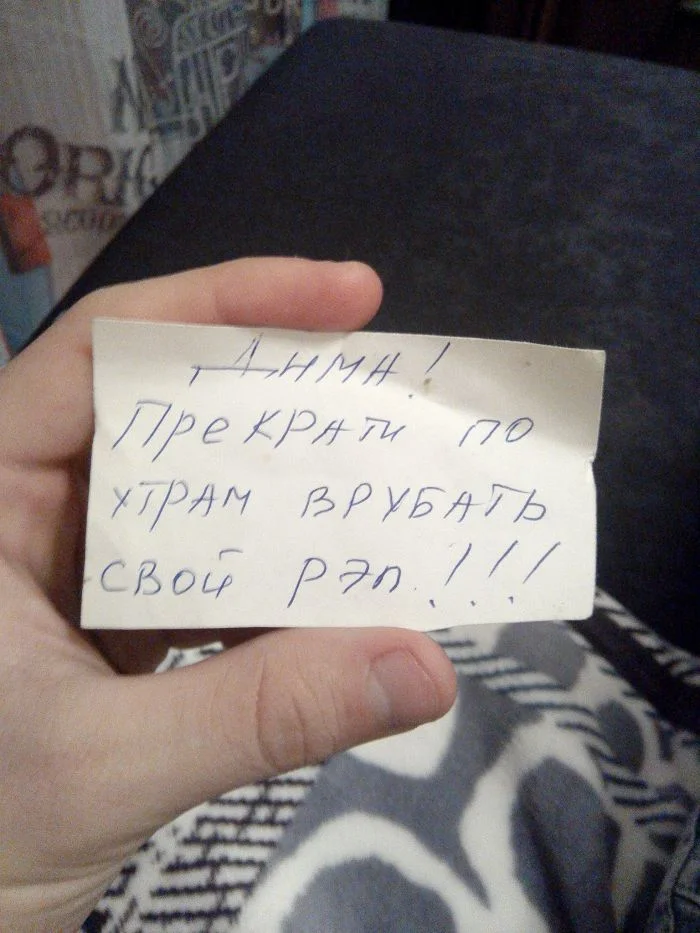 Дима!
Прекрати по
утрам врубать
свой рэп!!!
ORI